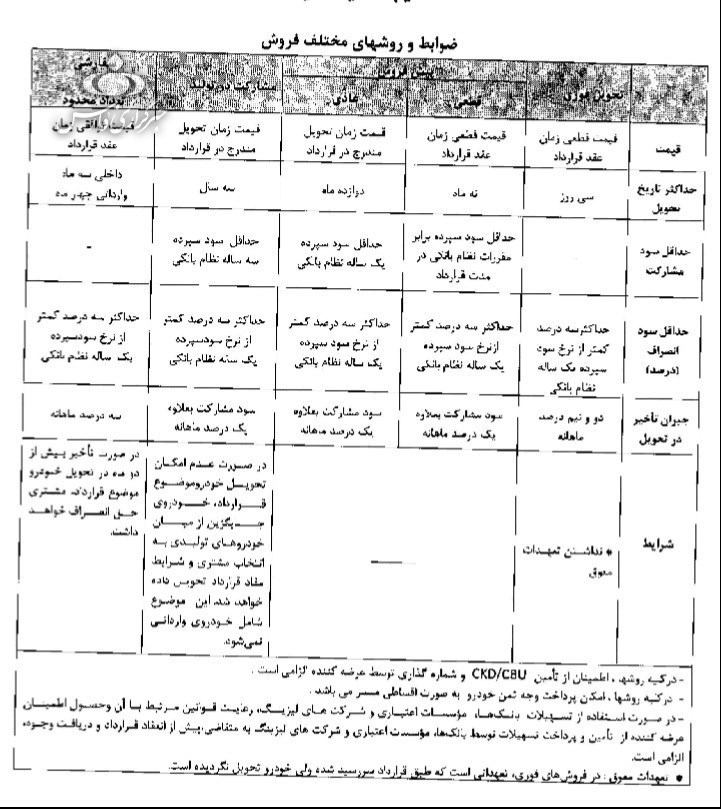 ضوابط و روشهای مختلف فروش
پیش فروش
سفارشی
تحویل فوری
قطعی
عادی
مشارکت در تولید
تعداد محدود
قیمت
قیمت قطعی زمان
عقد قرارداد
قیمت قطعی زمان
عقد قرارداد
قیمت زمان تحویل
مندرج در قرارداد
قیمت زمان تحویل
مندرج در قرارداد
قیمت توافقی زمان
عقد قرارداد
حداکثر تاریخ
تحویل
سی روز
نه ماه
دوازده ماه
سه سال
داخلی سه ماه
وارداتی چهار ماه
حداقل سود
مشارکت
حداقل سود سپرده برابر
مقررات نظام بانکی در
مدت قرارداد
حداقل سود سپرده
یک ساله نظام بانکی
حداقل سود سپرده
سه ساله نظام بانکی
-
حداقل سود
انصراف
(درصد)
حداکثر سه درصد
کمتر از نرخ سود
سپرده یک ساله
نظام بانکی
حداکثر سه درصد کمتر
از نرخ سود سپرده
یک ساله نظام بانکی
حداکثر سه درصد کمتر
از نرخ سود سپرده
یک ساله نظام بانکی
حداکثر سه درصد کمتر
از نرخ سودسپرده
یک ساله نظام بانکی
حداکثر سه درصد کمتر
از نرخ سودسپرده
یک ساله نظام بانکی
جبران تأخیر
در تحویل
دو و نیم درصد
ماهانه
سود مشارکت بعلاوه
یک درصد ماهانه
سود مشارکت بعلاوه
یک درصد ماهانه
سود مشارکت بعلاوه
یک درصد ماهانه
سه درصد ماهانه
شرایط
* نداشتن تعهدات
معوق
در صورت عدم امکان
تحویل خودروموضوع
قرارداد، خودروی
جایگزین از میان
خودروهای تولیدی به
انتخاب مشتری و شرایط
مفاد قرارداد تحویل داده
خواهد شد. این موضوع
شامل خودروی وارداتی
نمی‌شود.
در صورت تأخیر بیش از
دو ماه در تحویل خودرو
موضوع قرارداد، مشتری
حق انصراف خواهد
داشت.
- درکلیه روشها ، اطمینان از تأمین CKD/CBU و شماره گذاری توسط عرضه کننده الزامی است .
- درکلیه روشها ، امکان پرداخت وجه ثمن خودرو به صورت اقساطی میسر می باشد .
- در صورت استفاده از تسهیلات بانک‌ها، مؤسسات اعتباری و شرکت های لیزینگ، رعایت قوانین مرتبط با آن وحصول اطمینان
عرضه کننده از تأمین و پرداخت تسهیلات توسط بانک‌ها، مؤسسات اعتباری و شرکت های لیزینگ به متقاضی، پیش از انعقاد قرارداد و دریافت وجوه،
الزامی است.
* تعهدات معوق : در فروش‌های فوری، تعهداتی است که طبق قرارداد سررسید شده ولی خودرو تحویل نگردیده است.